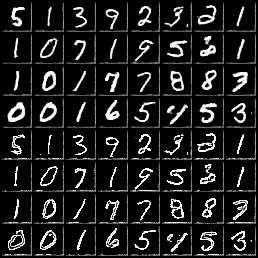 5 1 3 9 2 3 2 1
1 0 7 1 9 5 3 1
1 0 1 7 7 8 8 3
0 0 1 6 5 4 5 3
5 1 3 9 2 3 2 1
1 0 7 1 9 5 3 1
1 0 1 7 7 8 8 3
0 0 1 6 5 4 5 3